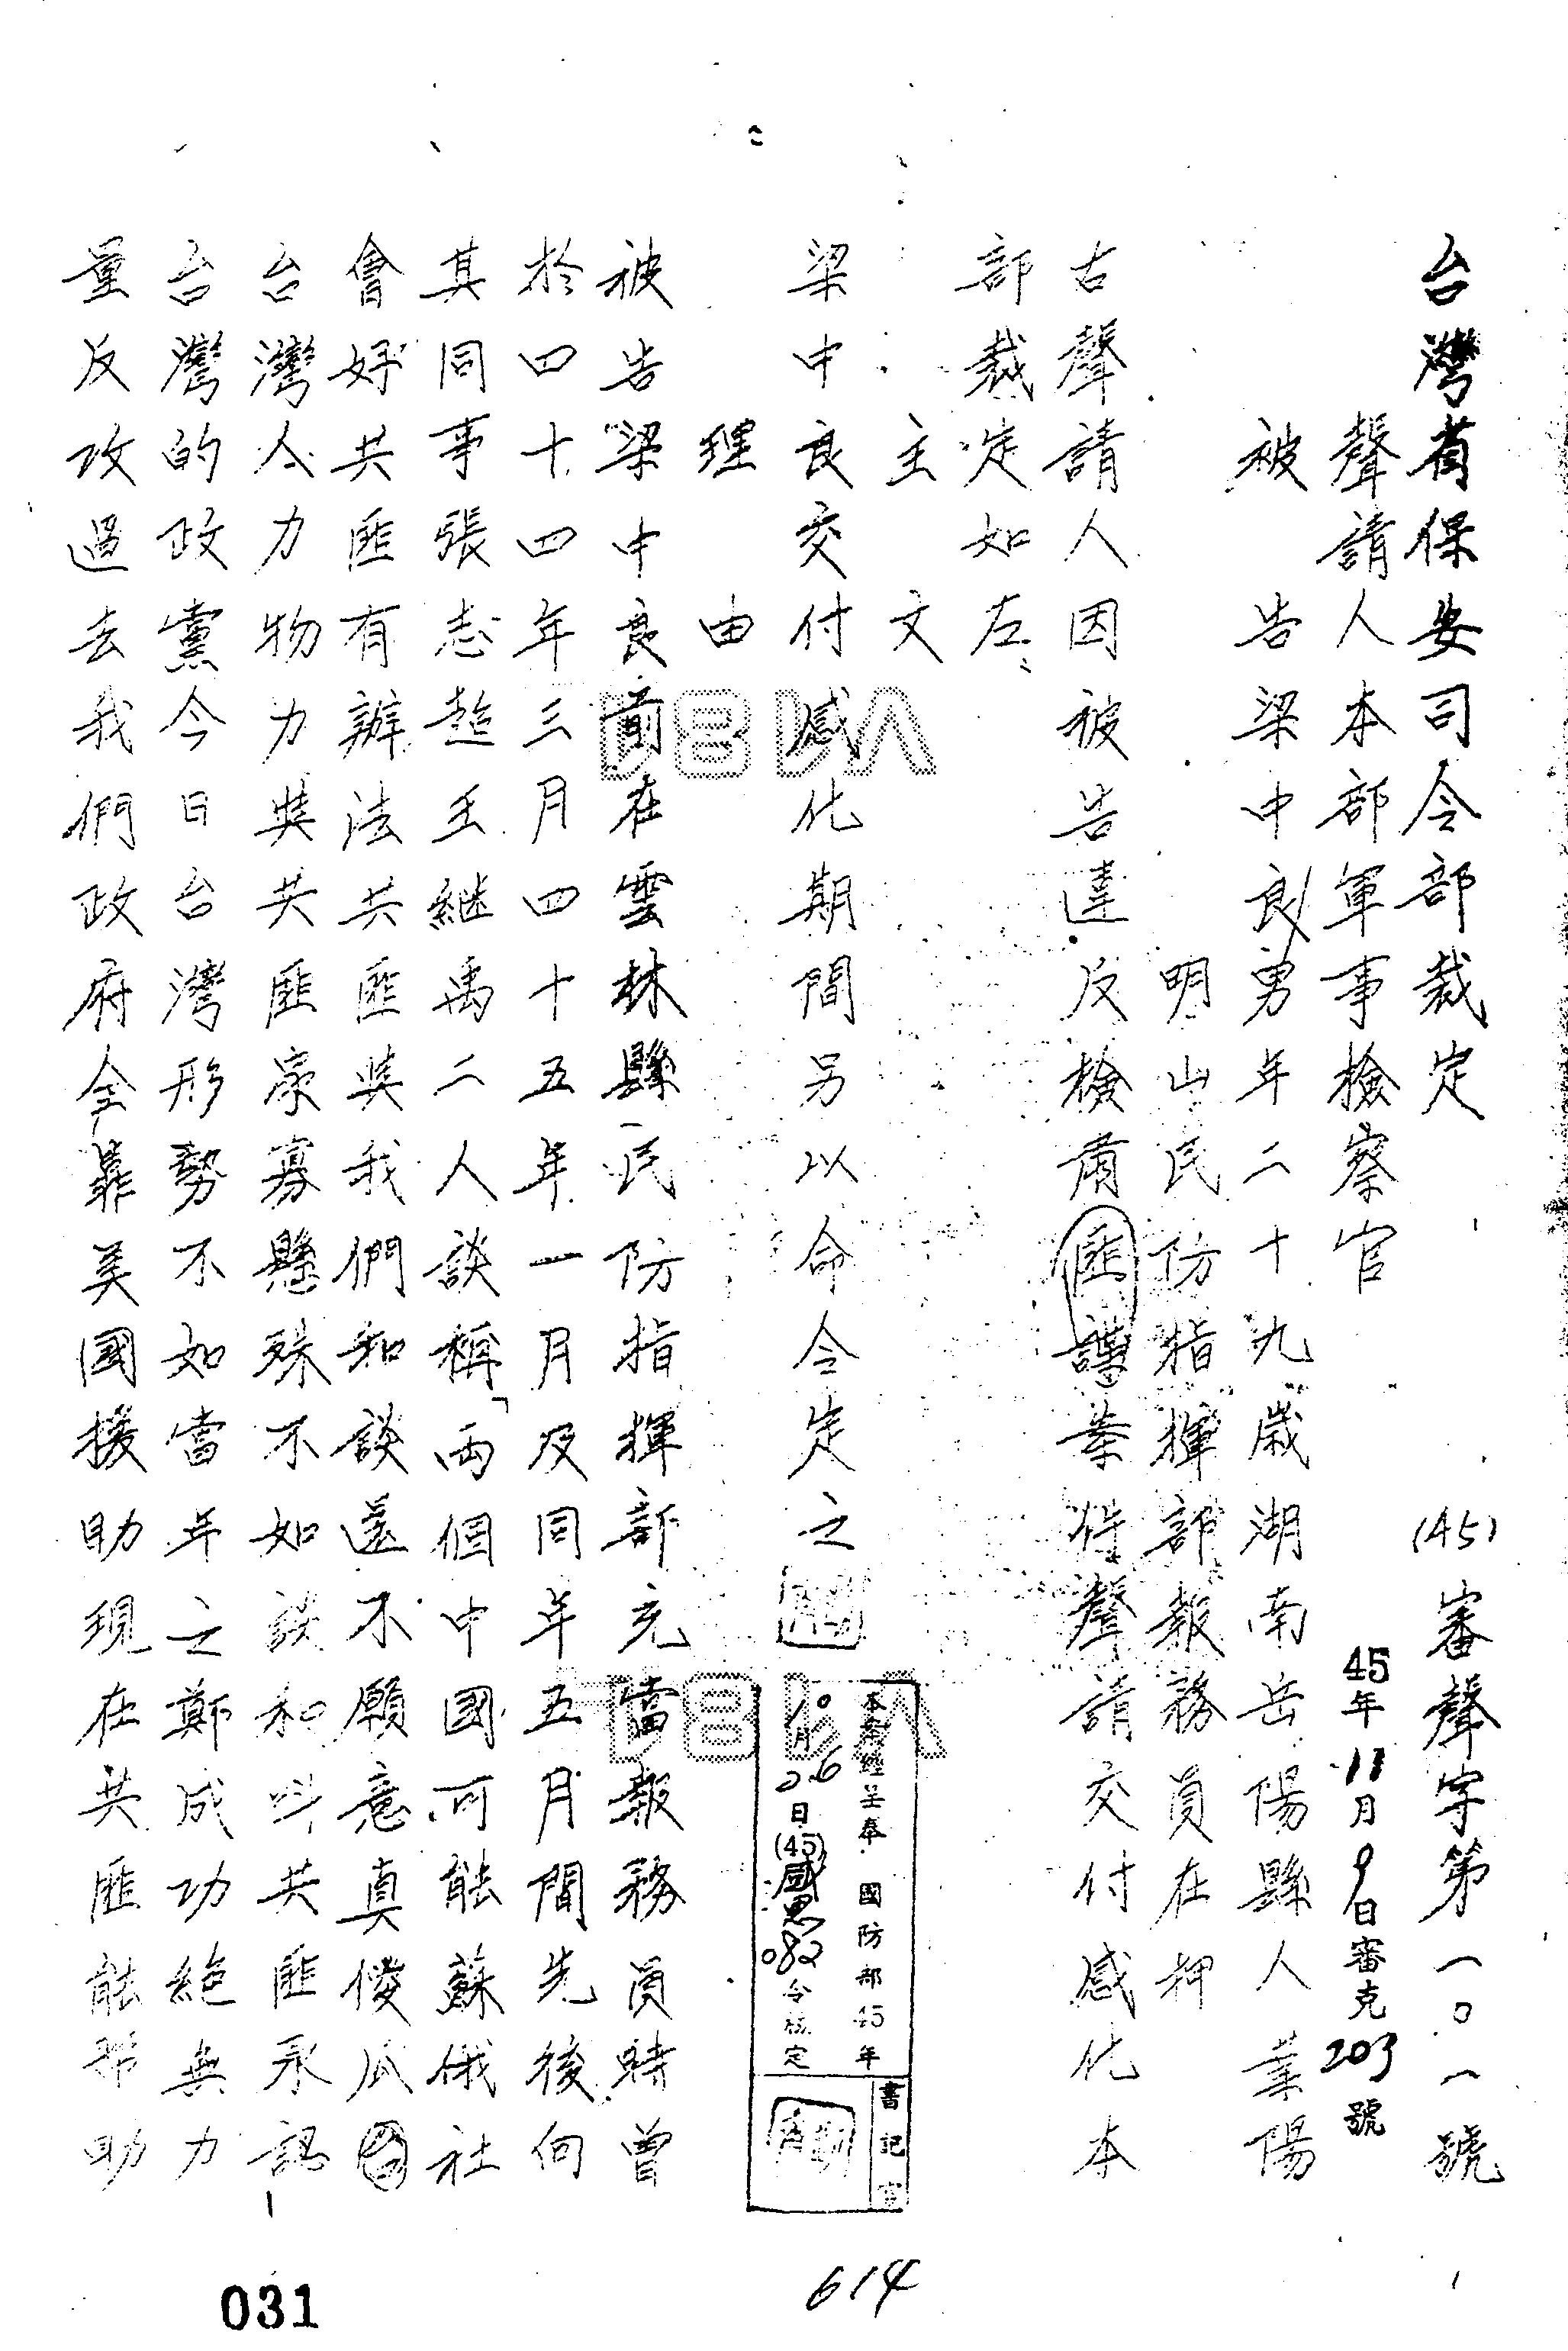 台灣省保安司令部裁定 (45)審聲字第一〇一號
45年11月9日審克203號
聲請人本部軍事檢察官
被告梁中良男年二十九歲湖南岳陽縣人業陽
明山民防指揮部報務員在押
右聲請人因被告違反檢肅匪諜案件聲請交付感化本
部裁定如左
主文
梁中良交付感化期間另以命令定之
本案經呈奉 國防部45年
10月26日(45)082令核定
書記官
理由
被告梁中良前在雲林縣民防指揮部充當報務員時曾
於四十四年三月四十五年一月及同年五月間先後向
其同事張志超王繼禹二人談稱「兩個中國可能蘇俄社
會好共匪有辦法共匪與我們和談還不願意真傻瓜
台灣人力物力與共匪衆寡懸殊不如談和叫共匪承認
台灣的政黨今日台灣形勢不如當年之鄭成功絕無力
量反攻過去我們政府全靠美國援助現在共匪能帮助
614
031